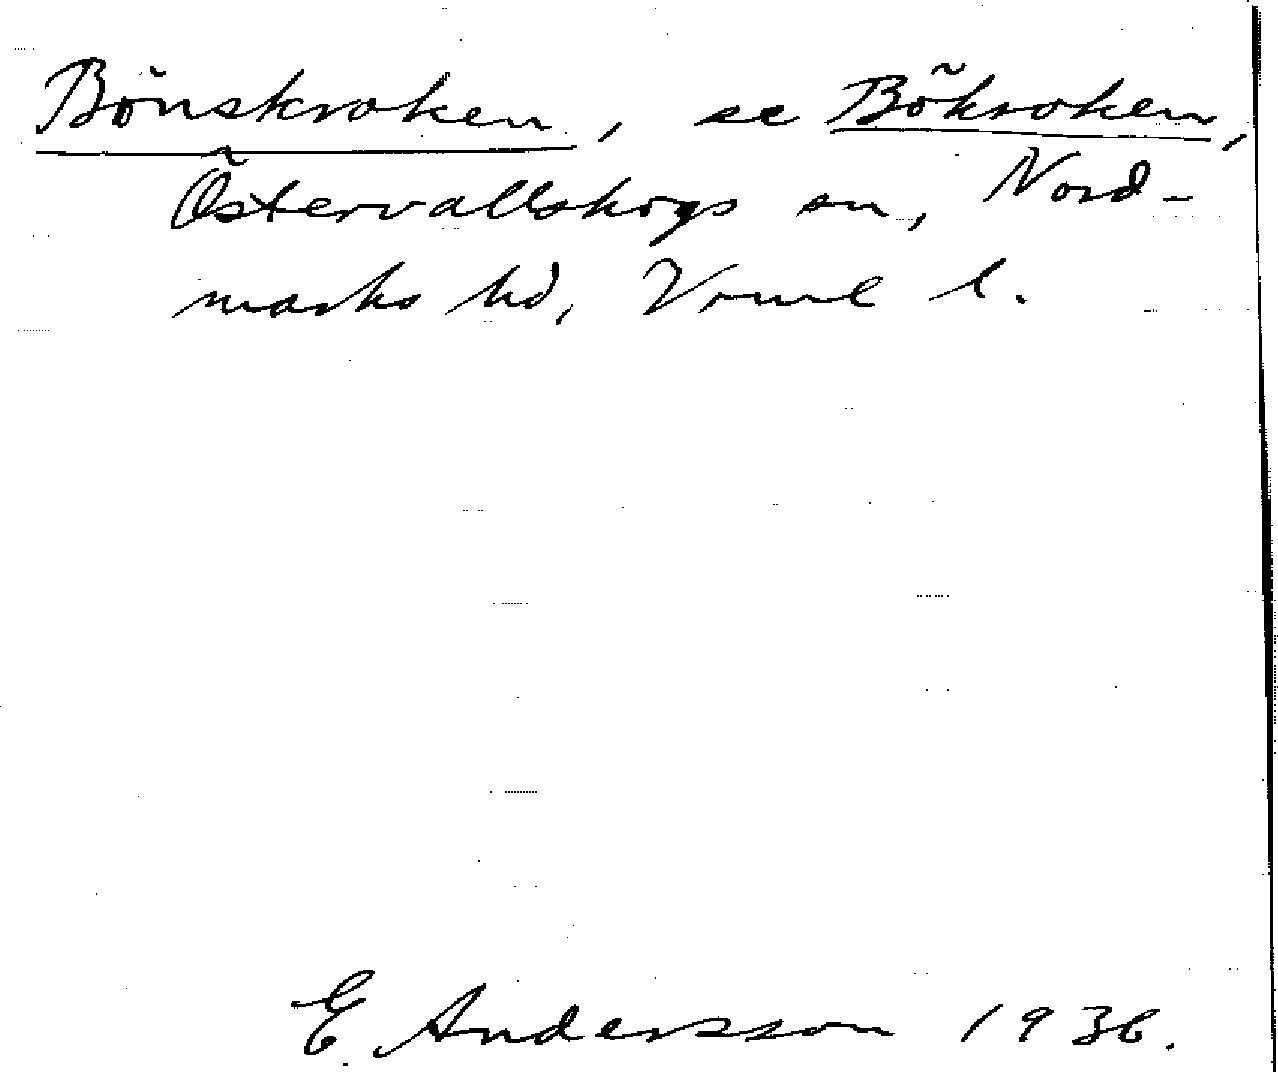 Bönskroken, se Bökroken,
Östervallskogs sn, Nord-
marks hd, Vrml l.
E. Andersson 1936.